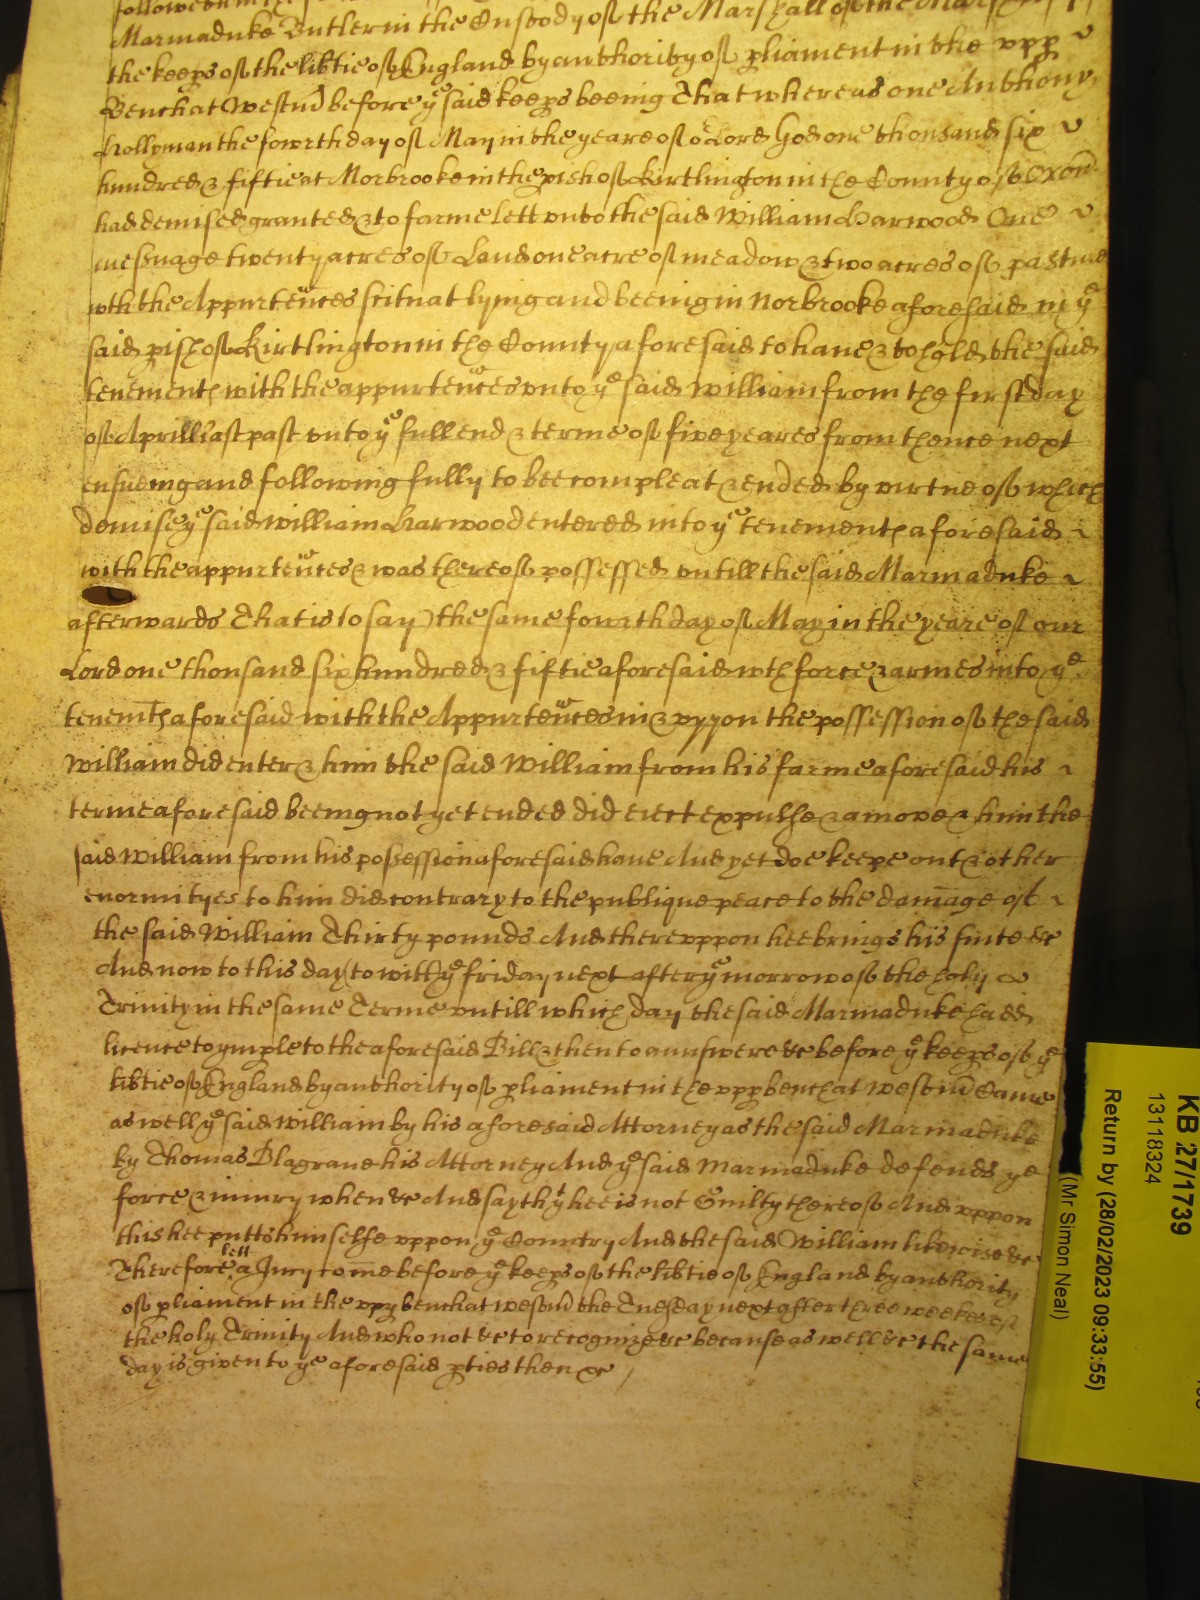 Marmaduke Butler in the Custody of the Marshall of the
the keeps of the libtie of England by authority of pliament in the vpp
Bench at Westm̃ before ye said keeps beeing That whereas one Anthony
Hollyman the fowrth day of May in the yeare of oͬ Lord God one thousand six
hundred & fiftie at Norbrooke in the pish of Kirtlington in the County of Oxon
had demised granted & to farme lett vnto the said William Harwood One
messuage twenty acres of Land one acre of meadow & two acres of pasture
wth the Appurteñces scituat lying and beeing in Norbrooke aforesaid in ye
said pish of Kirtlington in the County aforesaid to haue & to hold the said
tenements with the appurteñces vnto ye said William from the first day
of Aprill last past vnto ye full end & terme of five yeares from thence next
ensueing and following fully to bee compleat & ended by virtue of which
demise ye said William Harwood entered into ye tenements aforesaid
with the appurteñces & was thereof possessed vntill the said Marmaduke
afterwards That is to say) the same fowrth day of May in the yeare of our
Lord one thousand six hundred & fiftie aforesaid wth force & armes into ye
tenemts aforesaid with the Appurteñces in & vppon the possession of the said
William did enter & him the said William from his farme aforesaid his
terme aforesaid beeing not yet ended did eiect expulse & amove & him the
said William from his possession aforesaid haue And yet doe keepe out & other
enormityes to him did contrary to the publique peace to the dam̃age of
the said William Thirty pounds And therevppon hee brings his suite &c
And now to this day (to witt) ye friday next after ye morrow of the holy
Trinity in the same Terme vntill which day the said Marmaduke hadd
licence to ymple to the aforesaid Bill & then to aunswere &c before ye keeps of ye
libtie of England by authority of pliament in the vpp bench at westm̃ Came
as well ye said William by his aforesaid Attorney as the said Marmaduke
by Thomas Blagraue his Attorney And ye said Marmaduke defends ye
force & iniury when &c And sayth yt hee is not Guilty thereof And vppon
this hee putts himselfe vppon ye Country And the said William likewise &c
Therefore lett a Jury come before ye keeps of the libtie of England by authority
of pliament in the vpp bench at westm̃ the Tuesday next after three weekes of
the holy Trinity And who not &c to recognize &c because as well &c the same
day is given to ye aforesaid pties then &c
KB 27/1739
13118324
Return by (28/02/2023 09:33:55)
(Mr Simon Neal)